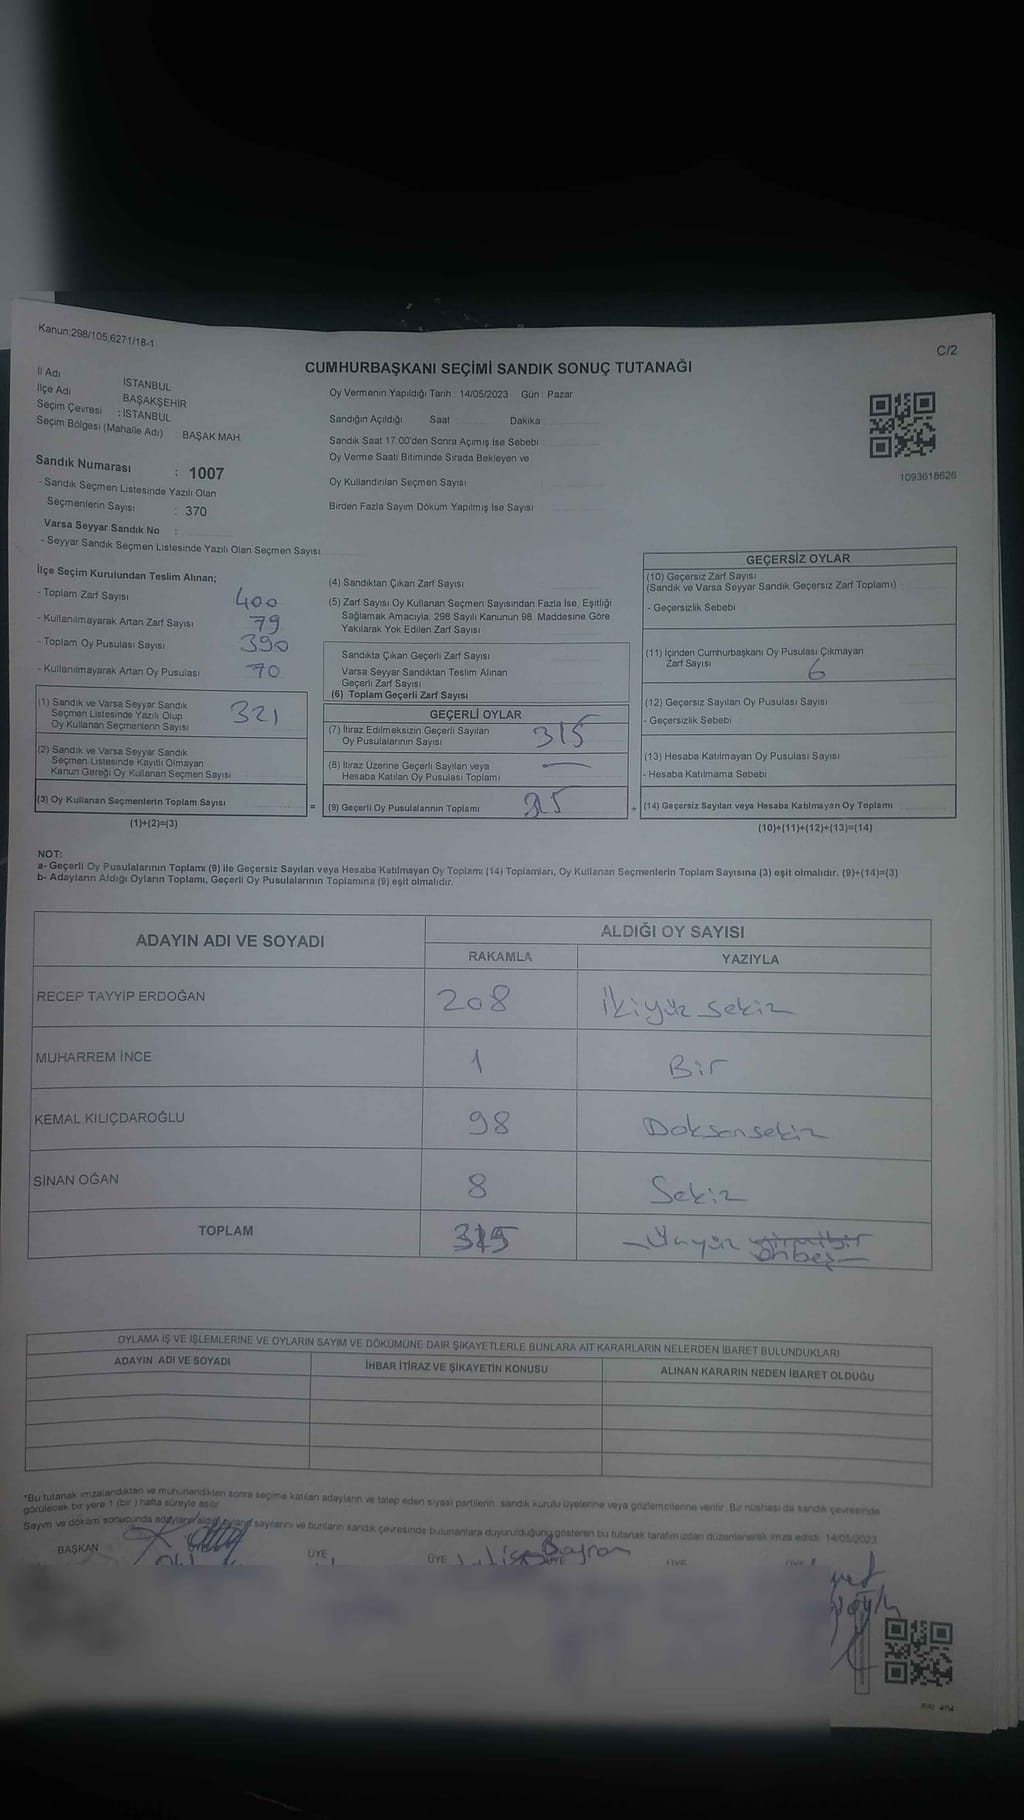 Kanun:298/105,6271/18-1
C/2
CUMHURBAŞKANI SEÇİMİ SANDIK SONUÇ TUTANAĞI
İl Adı İSTANBUL
İlçe Adı BAŞAKŞEHİR
Seçim Çevresi : İSTANBUL
Seçim Bölgesi (Mahalle Adı) : BAŞAK MAH.
Oy Vermenin Yapıldığı Tarih : 14/05/2023 Gün : Pazar
Sandığın Açıldığı Saat Dakika
Sandık Saat 17:00'den Sonra Açımış İse Sebebi
Oy Verme Saati Bitiminde Sırada Bekleyen ve
Oy Kullandırılan Seçmen Sayısı
Birden Fazla Sayım Döküm Yapılmış İse Sayısı
1093618626
Sandık Numarası : 1007
- Sandık Seçmen Listesinde Yazılı Olan
Seçmenlerin Sayısı : 370
Varsa Seyyar Sandık No :
- Seyyar Sandık Seçmen Listesinde Yazılı Olan Seçmen Sayısı
İlçe Seçim Kurulundan Teslim Alınan;
- Toplam Zarf Sayısı 400
- Kullanılmayarak Artan Zarf Sayısı 79
- Toplam Oy Pusulası Sayısı 390
- Kullanılmayarak Artan Oy Pusulası 70
(1) Sandık ve Varsa Seyyar Sandık
Seçmen Listesinde Yazılı Olup
Oy Kullanan Seçmenlerin Sayısı 321
(2) Sandık ve Varsa Seyyar Sandık
Seçmen Listesinde Kayıtlı Olmayan
Kanun Gereği Oy Kullanan Seçmen Sayısı
(3) Oy Kullanan Seçmenlerin Toplam Sayısı
(1)+(2)=(3)
=
(4) Sandıktan Çıkan Zarf Sayısı
(5) Zarf Sayısı Oy Kullanan Seçmen Sayısından Fazla İse, Eşitliği
Sağlamak Amacıyla; 298 Sayılı Kanunun 98. Maddesine Göre
Yakılarak Yok Edilen Zarf Sayısı
Sandıkta Çıkan Geçerli Zarf Sayısı
Varsa Seyyar Sandıktan Teslim Alınan
Geçerli Zarf Sayısı
(6) Toplam Geçerli Zarf Sayısı
GEÇERLİ OYLAR
(7) İtiraz Edilmeksizin Geçerli Sayılan
Oy Pusulalarının Sayısı 315
(8) İtiraz Üzerine Geçerli Sayılan veya
Hesaba Katılan Oy Pusulası Toplamı —
(9) Geçerli Oy Pusulalarının Toplamı 315
+
GEÇERSİZ OYLAR
(10) Geçersiz Zarf Sayısı
(Sandık ve Varsa Seyyar Sandık Geçersiz Zarf Toplamı)
- Geçersizlik Sebebi
(11) İçinden Cumhurbaşkanı Oy Pusulası Çıkmayan
Zarf Sayısı 6
(12) Geçersiz Sayılan Oy Pusulası Sayısı
- Geçersizlik Sebebi
(13) Hesaba Katılmayan Oy Pusulası Sayısı
- Hesaba Katılmama Sebebi
(14) Geçersiz Sayılan veya Hesaba Katılmayan Oy Toplamı
(10)+(11)+(12)+(13)=(14)
NOT:
a- Geçerli Oy Pusulalarının Toplamı (9) ile Geçersiz Sayılan veya Hesaba Katılmayan Oy Toplamı (14) Toplamları, Oy Kullanan Seçmenlerin Toplam Sayısına (3) eşit olmalıdır. (9)+(14)=(3)
b- Adayların Aldığı Oyların Toplamı, Geçerli Oy Pusulalarının Toplamına (9) eşit olmalıdır.
ADAYIN ADI VE SOYADI
ALDIĞI OY SAYISI
RAKAMLA YAZIYLA
RECEP TAYYİP ERDOĞAN 208 İkiyüz sekiz
MUHARREM İNCE 1 Bir
KEMAL KILIÇDAROĞLU 98 Doksansekiz
SİNAN OĞAN 8 Sekiz
TOPLAM 315 Üçyüz onbeş
OYLAMA İŞ VE İŞLEMLERİNE VE OYLARIN SAYIM VE DÖKÜMÜNE DAİR ŞİKAYETLERLE BUNLARA AİT KARARLARIN NELERDEN İBARET BULUNDUKLARI
ADAYIN ADI VE SOYADI İHBAR İTİRAZ VE ŞİKAYETİN KONUSU ALINAN KARARIN NEDEN İBARET OLDUĞU
*Bu tutanak imzalandıktan ve mühürlendikten sonra seçime katılan adayların ve talep eden siyasi partilerin sandık kurulu üyelerine veya gözlemcilerine verilir. Bir nüshası da sandık çevresinde
görülecek bir yere 1 (bir) hafta süreyle asılır.
Sayım ve döküm sonucunda adayların aldığı oyların sayılarını ve bunların sandık çevresinde bulunanlara duyurulduğunu gösteren bu tutanak tarafımızdan düzenlenerek imza edildi. 14/05/2023
BAŞKAN ÜYE ÜYE Bayram ÜYE